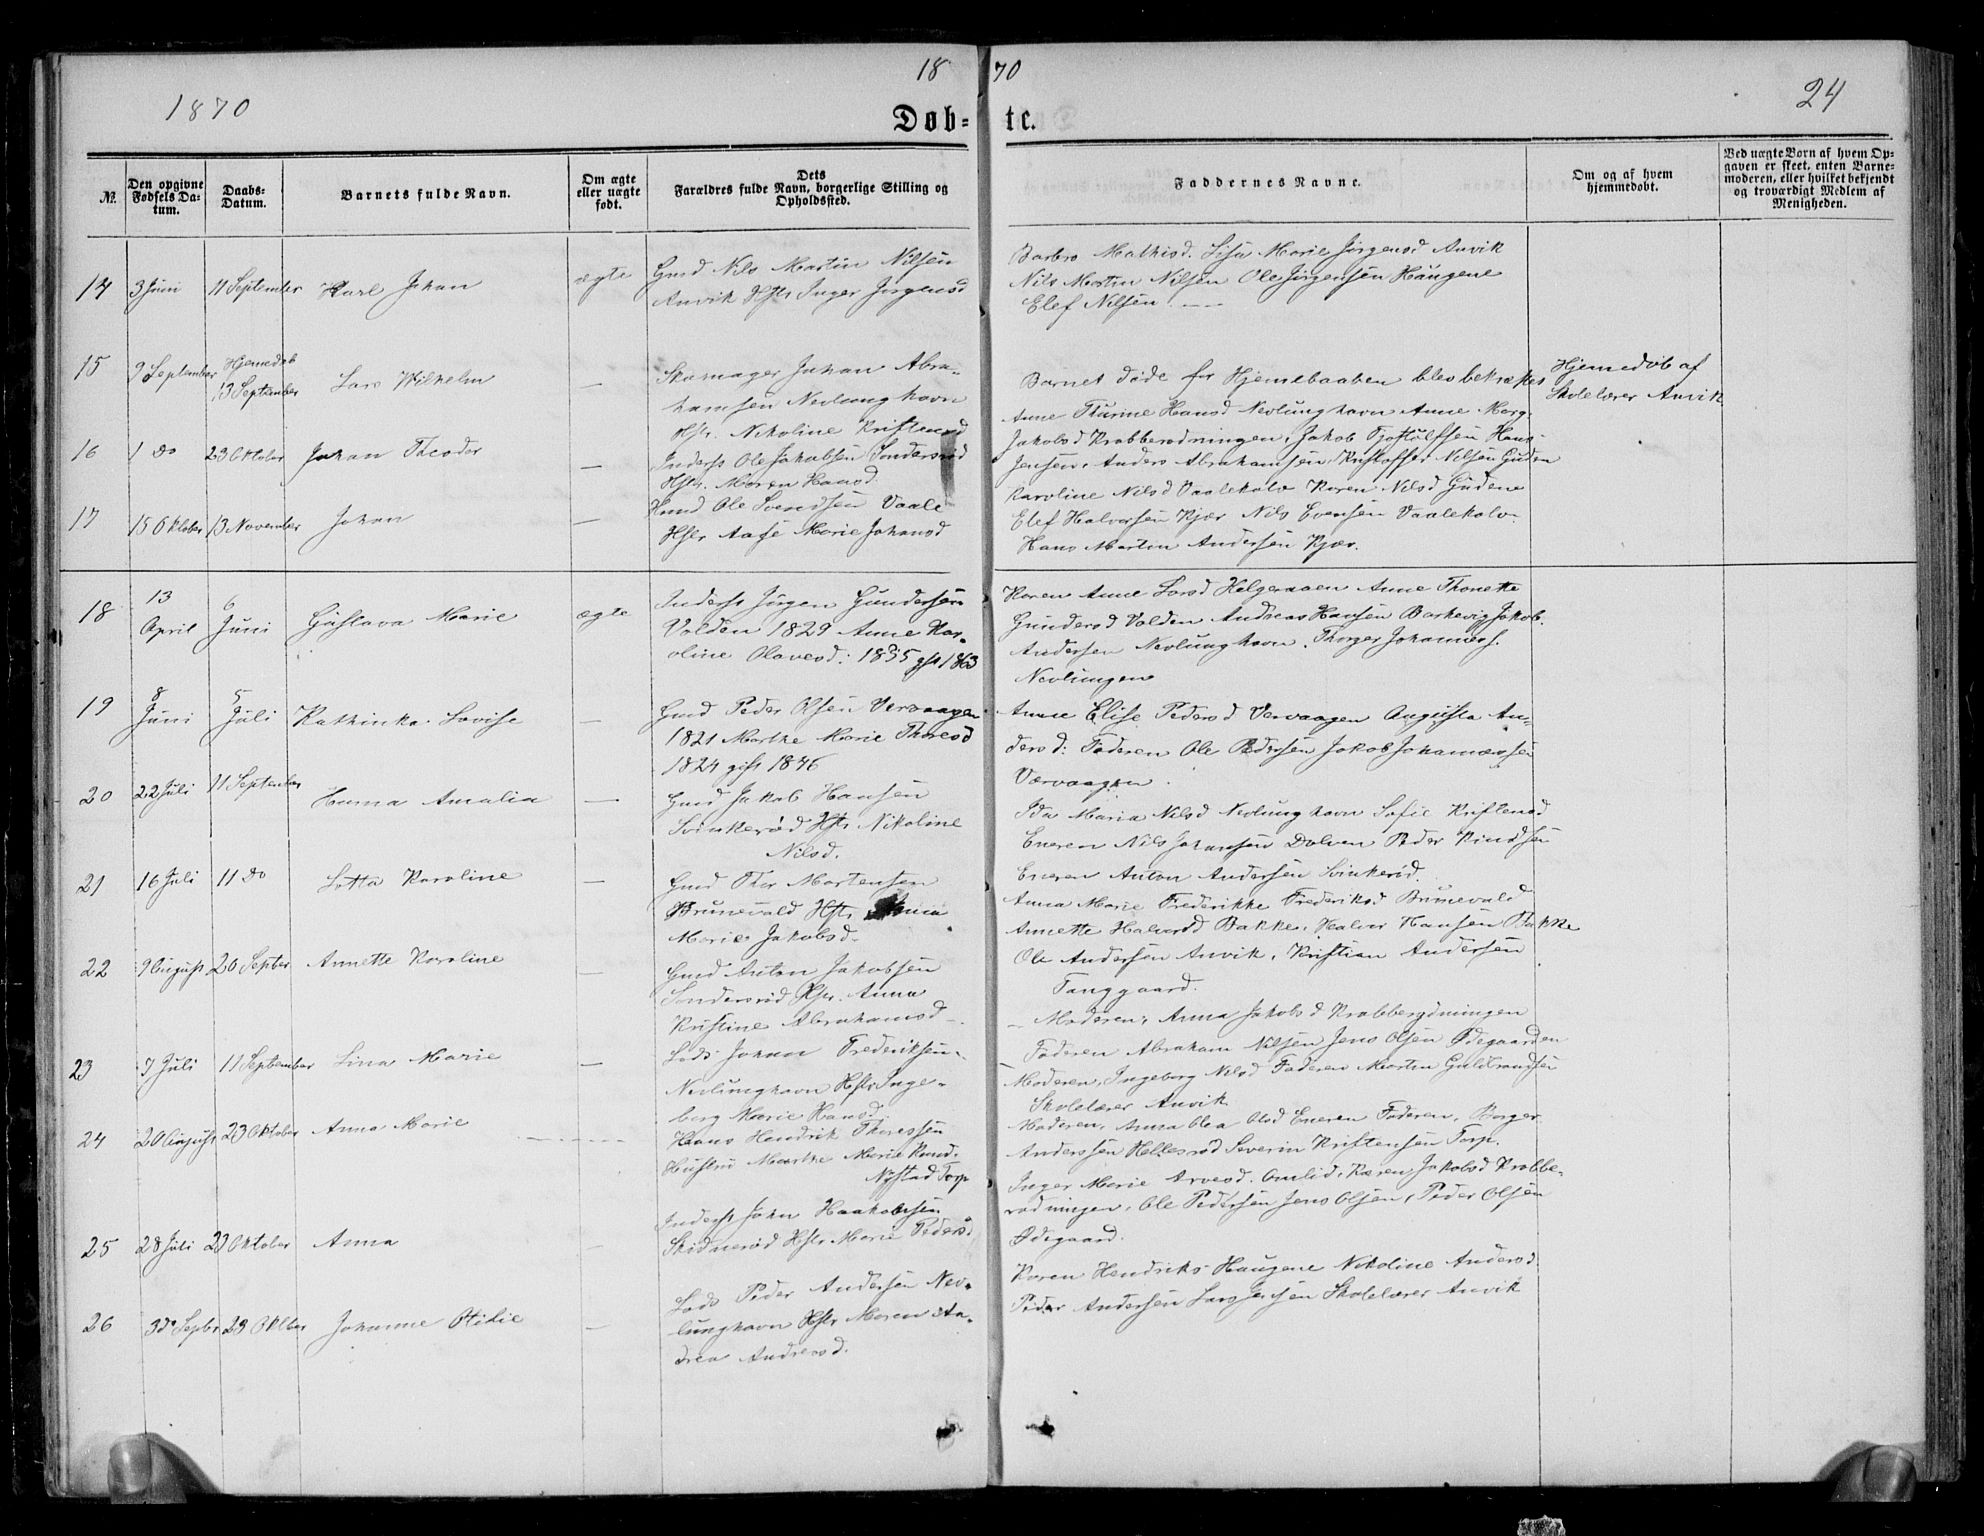 1870
18 70
24
Døb- te.
№.
Den opgivne Fødsels Datum.
Daabs-Datum.
Barnets fulde Navn.
Om ægte eller uægte født.
Dets Forældres fulde Navn, borgerlige Stilling og Opholdssted.
Faddernes Navne.
Om og af hvem hjemmedøbt.
Ved uægte Børn af hvem Opgaven er skeet, enten Barnemoderen, eller hvilket bekjendt og troværdigt Medlem af Menigheden.
14 3 Juni 11 September Karl Johan ægte
Gmd Nils Martin Nilsen
Anvik Hstr Inger Jørgensd
Barbro Mathisd. Lisa Marie Jørgensd Anvik
Nils Martin Nilsen Ole Jørgensen Haugene
Elef Nilsen. — —
15 9 September Hjemedøb 13 September Lars Wilhelm —
Skomager Johan Abra-
hamsen Nevlunghavn
Hstr. Nikoline Kristensd
Barnet døde før Hjemebaaben blev bekræftet
Hjemedøb af
Skolelærer Anvik
16 1 Do 23 Oktober Johan Theodor —
Inderst Ole Jakobsen Sondersrød
Hstr. Maren Hansd.
Anne Thurine Hansd Nevlunghavn Anne Marg.
Jakobsd Krabberødningen, Jakob Tjostolfsen Hans
Jensen, Anders Abrahamsen, Kristoffer Nilsen Guden
17 15 Oktober 13 November Johan —
Ole Svendsen Vaale
Hstr Aase Marie Johansd
Karoline Nilsd Vaalekolv Karen Nilsd Gudene
Elef Halvorsen Kjær Nils Evensen Vaalekolv.
Hans Martin Andersen Kjær.
18 13 April 6 Juni Gustava Marie ægte
Inderst Jørgen Gundersen
Valden 1829 Anne Kar-
oline Olavesd: 1835 gft 1863
Karen Anne Larsd Helgeraaen Anne Thonette
Gundersd Valden Andreas Hansen Barkevig Jakob.
Andersen Nevlunghavn. Thorger Johanness.
Nevlungen
19 8 Juni 5 Juli Kathinka Lovise —
Gmd Peder Olsen Vervaagen
1821 Marthe Marie Thoresd
1824 gift 1846
Anne Elise Pedersd Vervaagen Augusta An-
dersd: Faderen Ole Pedersen Jakob Johannessen
Værvaagen.
20 22 Juli 11 September Huma Amalia —
Gmd Jakob Hansen
Svinkerød Hstr Nikoline
Nilsd.
Ida Maria Nilsd Nevlunghavn Sofie Kristensd
Eneren Nils Johansen Dolven Peder Knudsen
Eneren Anton Andersen Svinkerød.
21 16 Juli 11 Do Lotta Karoline —
Gmd Thor Mortensen
Brunevald Hstr Anna
Marie Jakobsd.
Anna Marie Frederikke Frederiksd Brunevald
Annette Halvorsd Bakke, Halvor Hansen Bakke
Ole Andersen Anvik, Kristian Andersen
Fanggaard.
22 9 August 20 Septber Annette Karoline —
Gmd Anton Jakobsen
Sondersrød Hstr. Anna
Kristine Abrahamsd —
— Moderen, Anna Jakobsd Krabberydningen
Faderen Abraham Nilsen Jens Olsen Ødegaarden
23 7 Juli 11 September Lina Marie —
Lods Johan Frederiksen
Nevlunghavn Hstr Inge-
borg Marie Hansd.
Moderen, Ingeborg Nilsd Faderen Martin Guldbrandsen
Skolelærer Anvik
24 20 August 23 Oktober Anna Marie — — — —
Hans Hendrik Thoressen
Hustru Marthe Marie Knud.
Nystad Torp
Moderen, Anna Olea Olsd Eneren Faderen, Borger
Anderssen Hellesrød Severin Kristensen Torp.
25 28 Juli 23 Oktober Anna —
Inderst John Haakonsen
Skidnerød Hstr Marie Pedersd
Inger Marie Arvesd. Omlid, Karen Jakobsd Krabbe-
rødningen, Ole Pedersen Jens Olsen, Peder Olsen
Ødegaard.
26 3de Septbr 23 Oktber Johanne Otilie —
Lods Peder Andersen Nev-
lunghavn Hstr Maren An-
drea Andersd.
Karen Hendriks Haugene Nikoline Andersd
Peder Andersen Lars Jensen Skolelærer Anvik